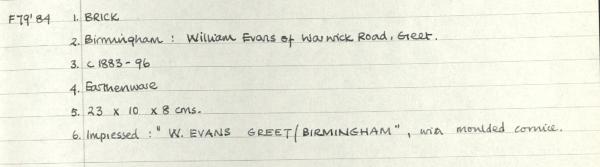 F79'84 1. BRICK
2. Birmingham : William Evans of Warwick Road, Greet.
3. c 1883 - 96
4. Earthenware
5. 23 x 10 x 8 cms.
6. Impressed : " W. EVANS GREET/BIRMINGHAM", with moulded cornice.